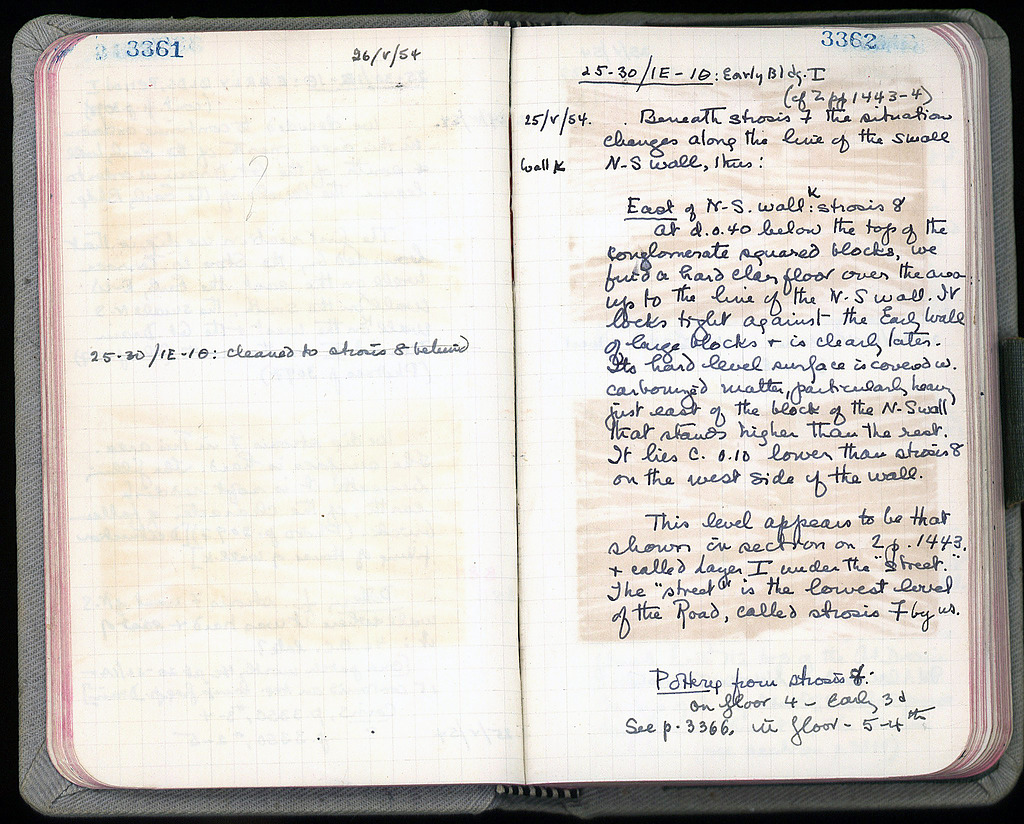 3361
26/V/54
25-30/IE-10: cleaned to strosis 8 behind
3362
25-30/IE-10: Early Bldg. I
(cf 2 pp 1443-4)
25/V/54. Beneath strosis 7 the situation
changes along the line of the small
Wall K N-S wall, thus:
East of N-S. wall K: strosis 8
At d. 0.40 below the top of the
conglomerate squared blocks, we
find a hard clay floor over the area
up to the line of the N-S wall. It
locks tight against the Early wall
of large blocks + is clearly later.
Its hard level surface is covered w.
carbonized matter, particularly heavy
just east of the block of the N-S wall
that stands higher than the rest.
It lies c. 0.10 lower than strosis 8
on the west side of the wall.
This level appears to be that
shown in section on 2 p. 1443,
+ called Layer I under the "street."
The "street" is the lowest level
of the Road, called strosis 7 by us.
Pottery from strosis 8:
on floor 4 - early 3d
See p. 3366. in floor - 5-4th